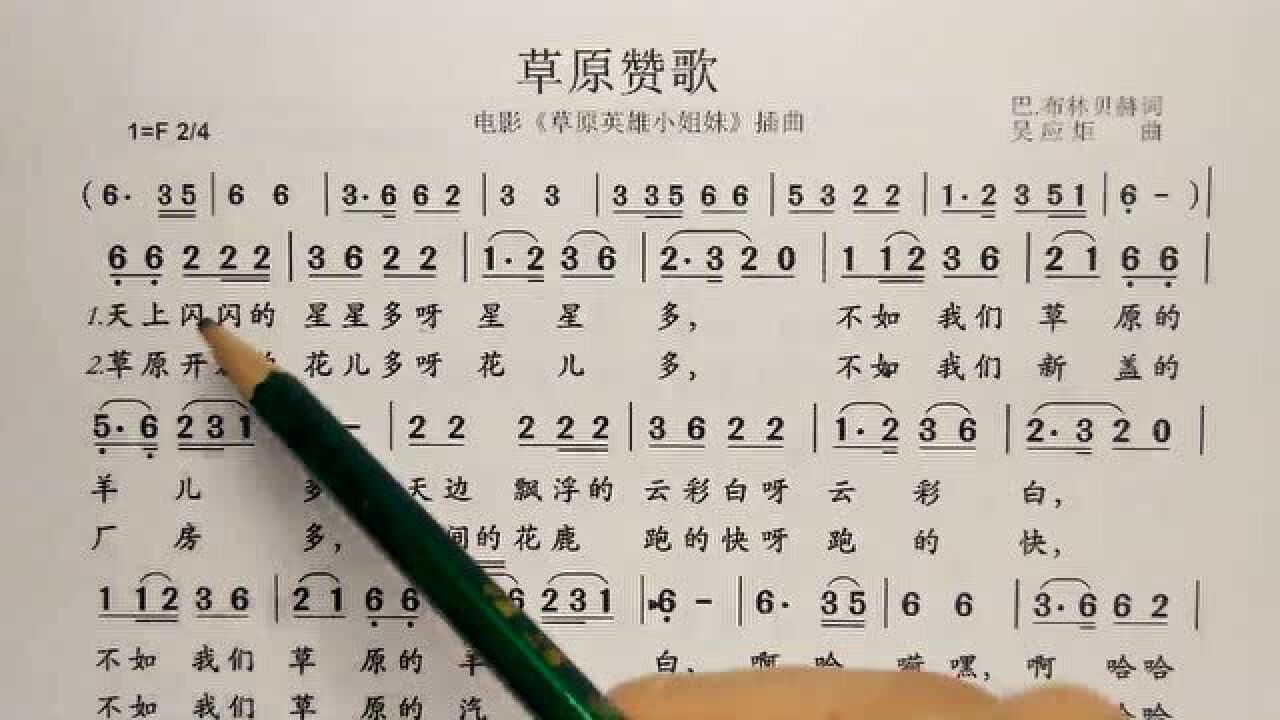 草原赞歌
电影《草原英雄小姐妹》插曲
巴.布林贝赫词
吴应炬 曲
1=F 2/4
( 6· 3 5 | 6 6 | 3· 6 6 2 | 3 3 | 3 3 5 6 6 | 5 3 2 2 | 1· 2 3 5 1 | 6 - ) |
6 6 2 2 2 | 3 6 2 2 | 1· 2 3 6 | 2· 3 2 0 | 1 1 2 3 6 | 2 1 6 6 |
1.天上闪闪的 星星多呀 星 星 多, 不如 我们 草 原的
2.草原开 花儿多呀 花 儿 多, 不如 我们 新 盖的
5· 6 2 3 1 - | 2 2 2 2 2 | 3 6 2 2 | 1· 2 3 6 | 2· 3 2 0 |
羊 儿 多 天边 飘浮的 云彩白呀 云 彩 白,
厂 房 多, 间的花鹿 跑的快呀 跑 的 快,
1 1 2 3 6 | 2 1 6 6 6 2 3 1 | 6 - | 6· 3 5 | 6 6 | 3· 6 6 2 |
不如 我们 草 原的 羊 白, 啊 哈 嗬 嘿, 啊 哈哈
不如 我们 草 原的 汽